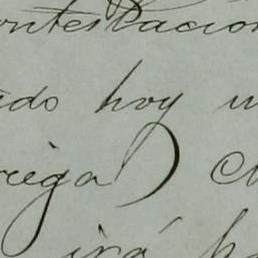 ontestacion
ado hoy u
riega)
irá